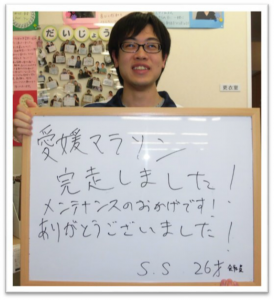 だいじょう
更衣室
愛媛マラソン
完走しました!
メンテナンスのおかげです!
ありがとうございました!
S.S 26才